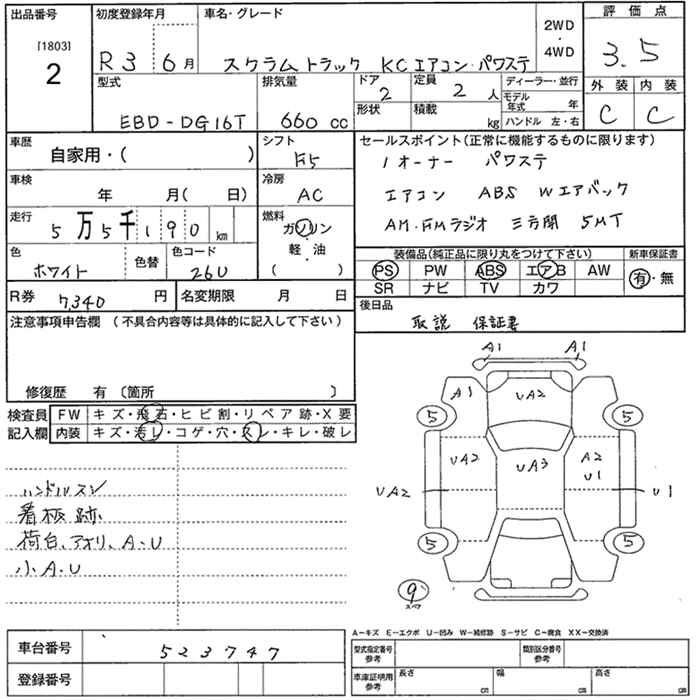 出品番号 初度登録年月 車名・グレード 2WD・4WD 評価点
[1803] 2 R3 6月 スクラムトラック KCエアコン・パワステ 3.5
型式 排気量 ドア 2 定員 2人 ディーラー・並行 外装 内装
EBD-DG16T 660cc 形状 積載 kg モデル年式 年 C C
ハンドル 左・右
車歴 自家用・( ) シフト F5 セールスポイント(正常に機能するものに限ります)
1オーナー パワステ
車検 年 月( 日) 冷房 AC エアコン ABS Wエアバック
走行 5万5千190km 燃料 ガソリン 軽・油 ( ) AM・FMラジオ 三方開 5MT
色 ホワイト 色替 色コード 26U 装備品(純正品に限り丸をつけて下さい) 新車保証書
PS PW ABS エアB AW 有・無
SR ナビ TV カワ
R券 7,340円 名変期限 月 日 後日品
取説 保証書
注意事項申告欄 (不具合内容等は具体的に記入して下さい)
修復歴 有 〔箇所 〕
検査員 FW キズ・飛石・ヒビ割・リペア跡・X要
記入欄 内装 キズ・汚レ・コゲ・穴・スレ・キレ・破レ
ハンドルスレ
看板跡
荷台、アオリ、A・U
小A・U
A1 A1
A1 UA2
5 5
UA2 UA3 A2 U1
UA2 U1
5 5
9
スペア
A−キズ E−エクボ U−凹み W−補修跡 S−サビ C−腐食 XX−交換済
車台番号 523747 型式指定番号 参考 類別区分番号 参考
登録番号 車庫証明用 参考 長さ cm 幅 cm 高さ cm